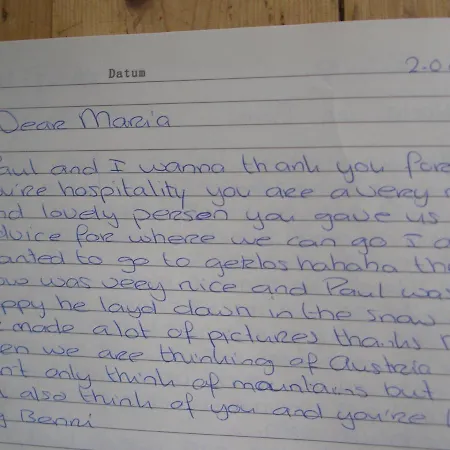 Datum 2.0
Dear Maria
Paul and I wanna thank you for
hospitality you are a very
lovely person you gave us
for where we can go I
to go to gerlos hahaha
was veey nice and Paul
he layd down in the snow
made alot of pictures thanks
we are thinking of Austria
only think of mountains but
also think of you and you're
Benni